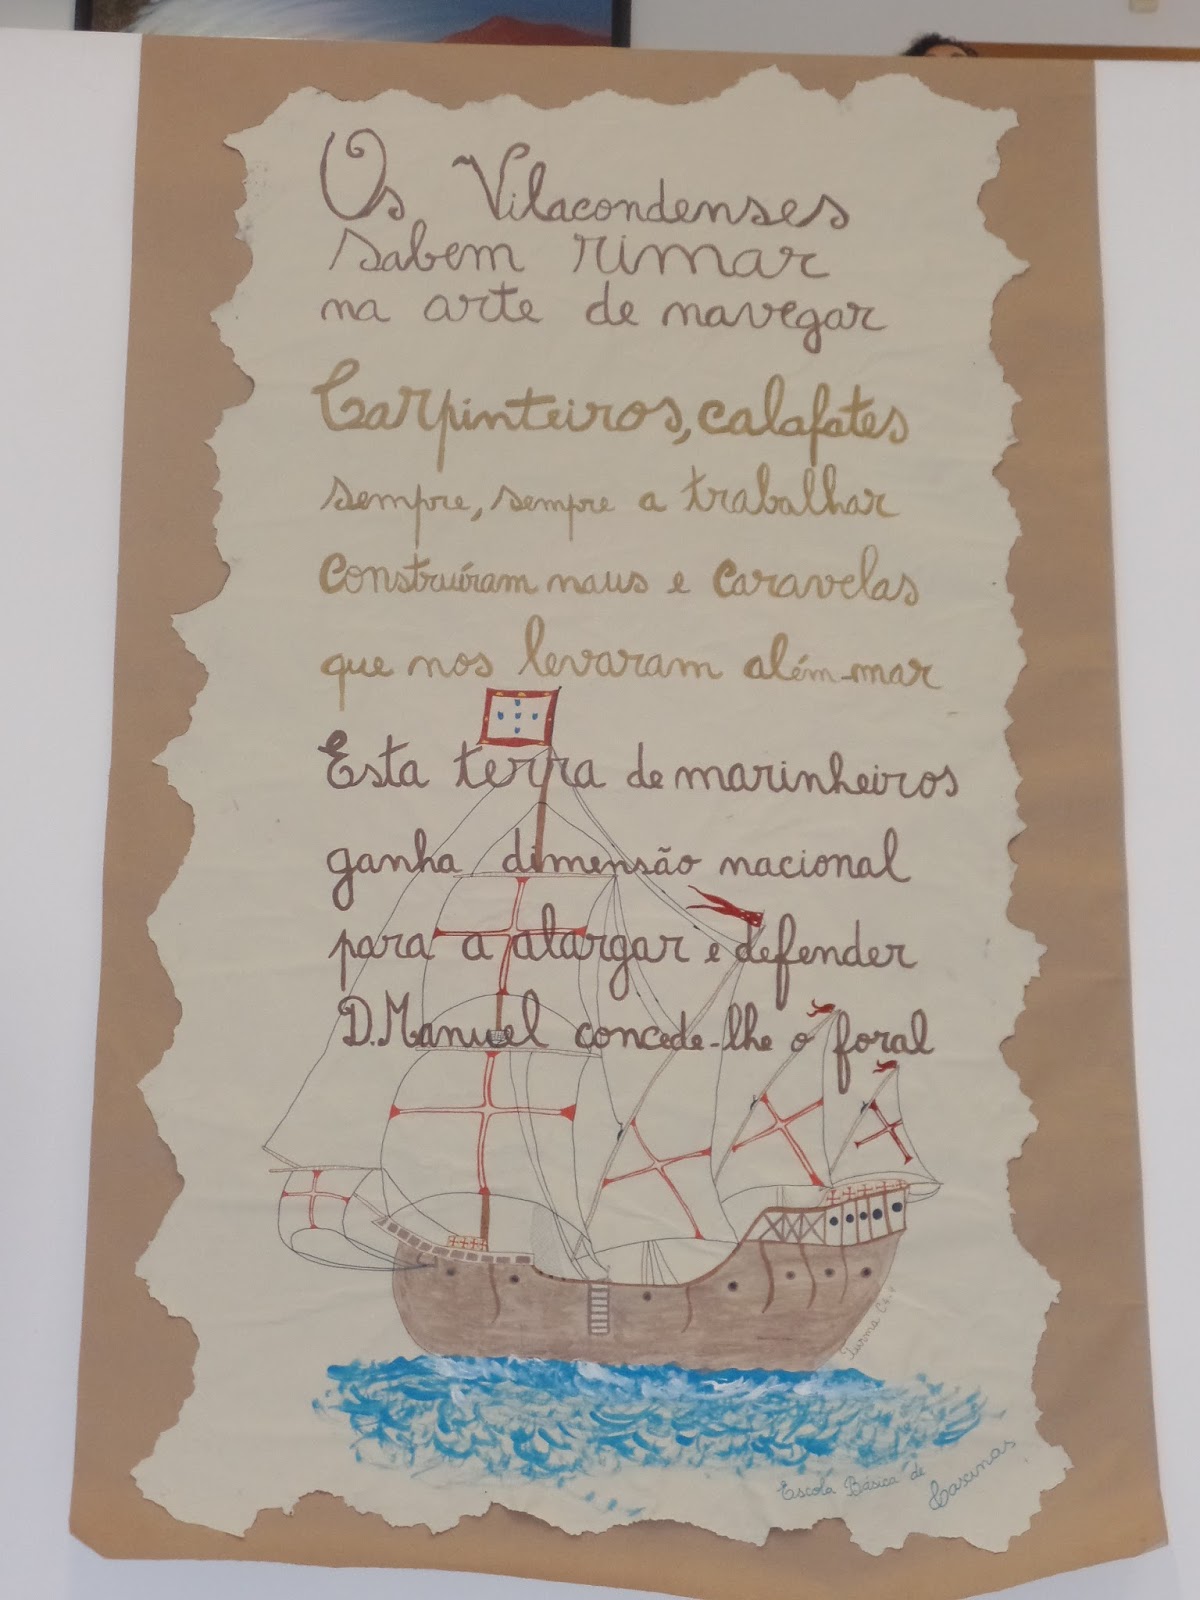 Os Vilacondenses
sabem rimar
na arte de navegar
Carpinteiros, calafates
sempre, sempre a trabalhar
construíram naus e caravelas
que nos levaram além-mar
Esta terra de marinheiros
ganha dimensão nacional
para a alargar e defender
D. Manuel concede-lhe o foral
Turma
Escola Básica de
Caxinas